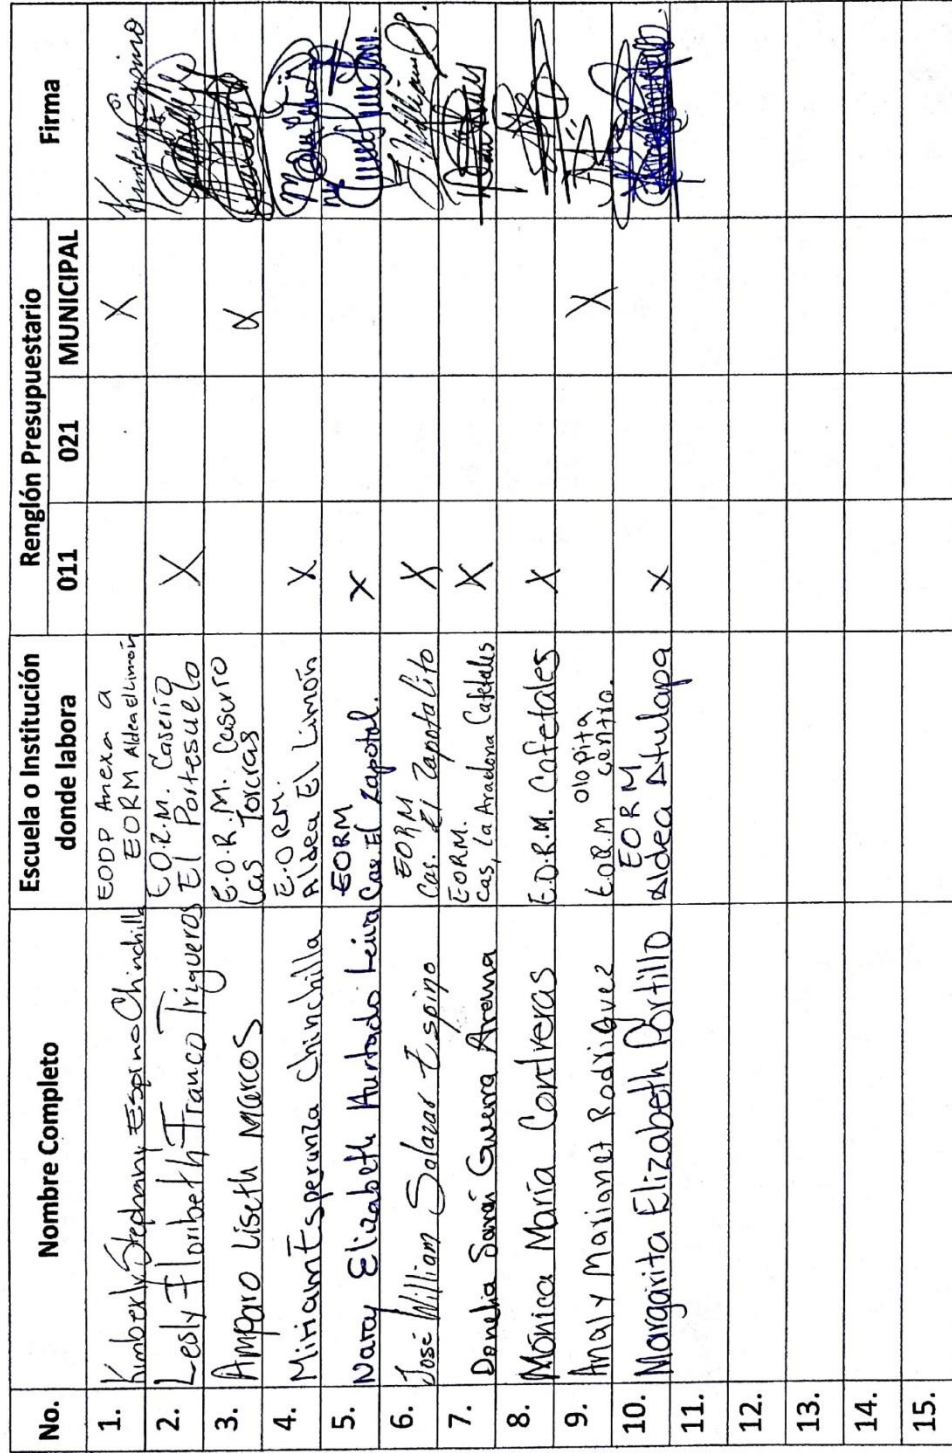 No. Nombre Completo Escuela o Institución donde labora Renglón Presupuestario Firma
011 021 MUNICIPAL
1. Kimberly Stephany Espino Chinchilla EODP Anexa a EORM Aldea el Limón X
2. Lesly Floribeth Franco Trigueros E.O.R.M. Caserío El Portesuelo X
3. Amparo Liseth Marcos E.O.R.M. Las X
4. Miriam Esperanza Chinchilla E.O.R.M. Aldea El Limón X
5. Elizabeth Hurtado Leiva EORM Cas. El Zapotal. X
6. José William Salazar Espino EORM Cas. El Zapotalito X J. William S.
7. Donelia Saraí Guerra EORM. Cas, La Aradona Cafetales X
8. Mónica María Contreras E.O.R.M. Cafetales X
9. Analy Marianet Rodriguez E.O.R.M olopita centro. X
10. Margarita Elizabeth Portillo EORM Aldea Atulapa X
11.
12.
13.
14.
15.